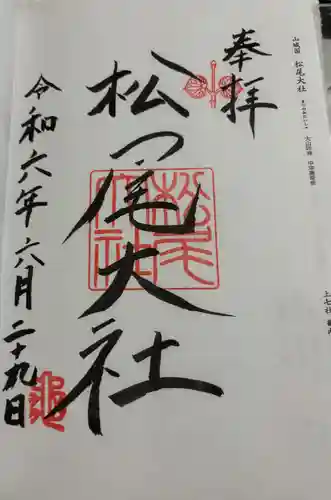 山城国 松尾大社
奉拝
松尾大社
松尾大社
令和六年六月二十九日